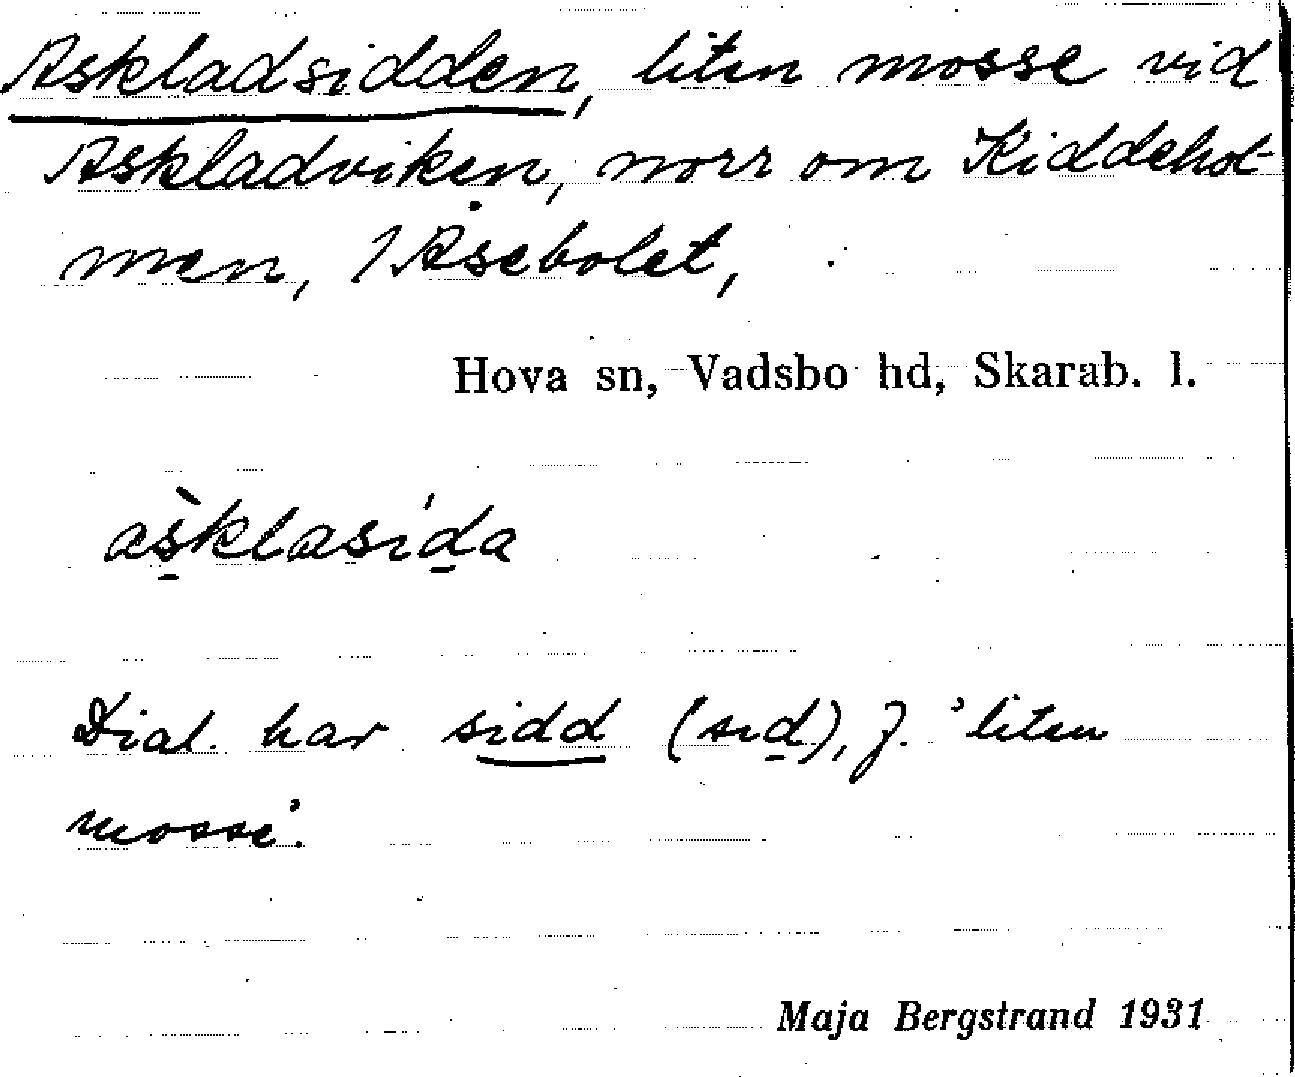 Askladsidden, liten mosse vid
Askladviken, norr om Kiddehol-
men, 1 Åsebolet,
Hova sn, Vadsbo hd, Skarab. l.
às̱klası́ḏa
Dial. har sidd (sıḏ), f. 'liten
mosse'.
Maja Bergstrand 1931